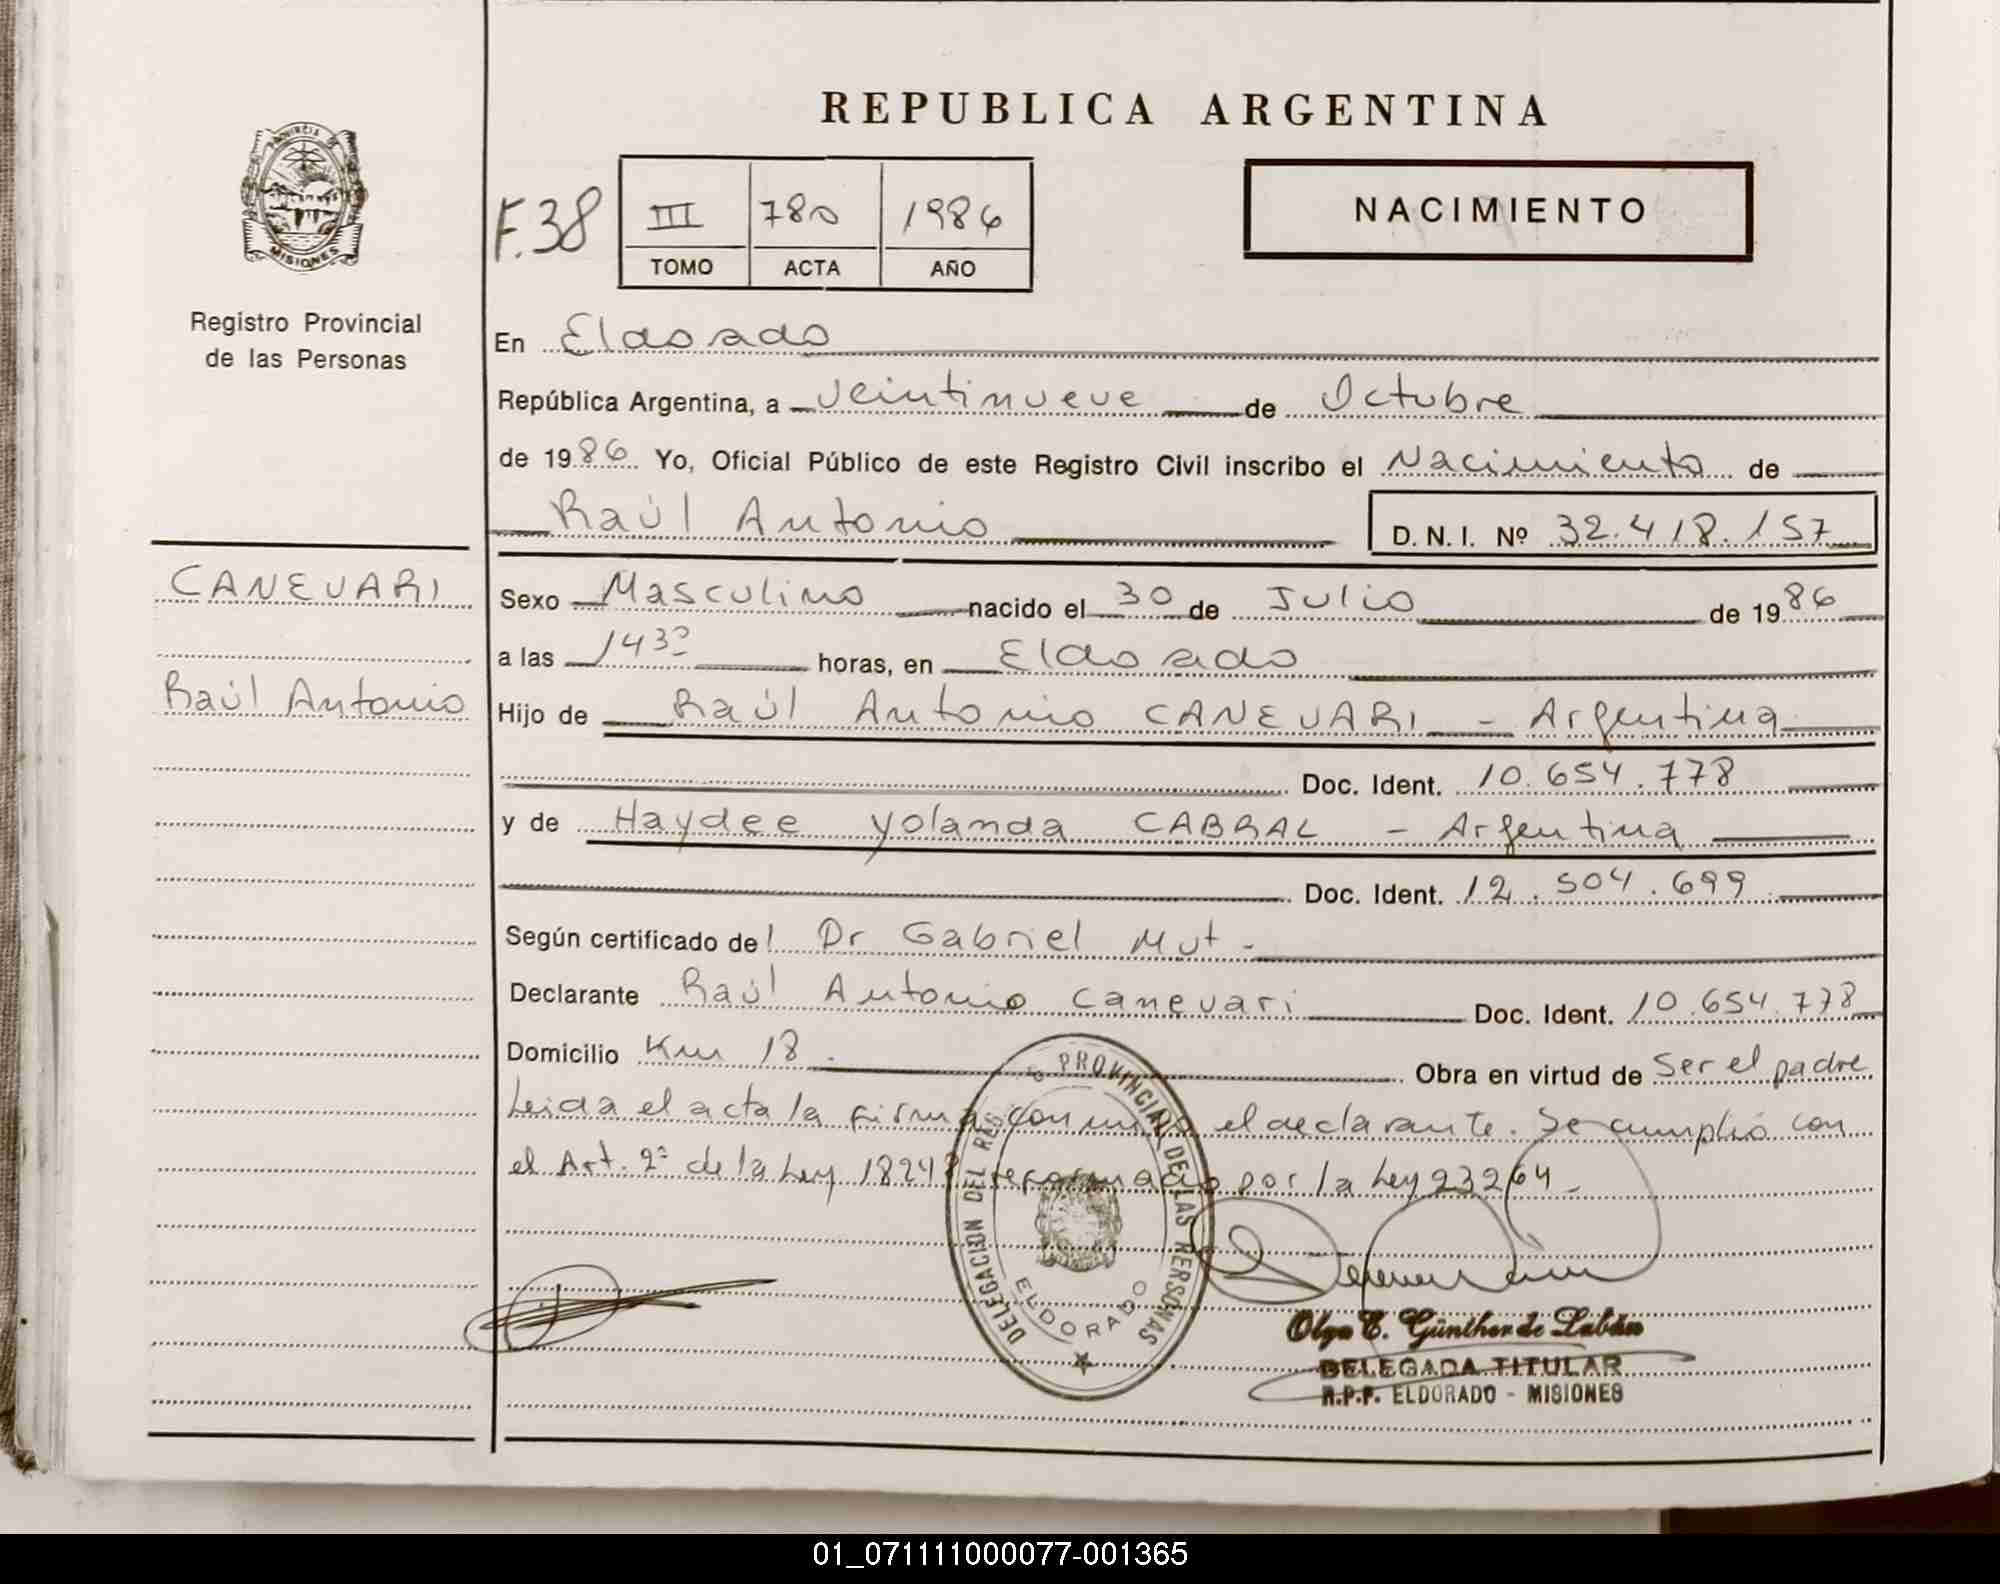 REPUBLICA ARGENTINA
PROVINCIA DE MISIONES
Registro Provincial
de las Personas
F.38
III 780 1986
TOMO ACTA AÑO
NACIMIENTO
En Eldorado
República Argentina, a veintinueve de Octubre
de 1986 Yo, Oficial Público de este Registro Civil inscribo el Nacimiento de
Raúl Antonio D. N. I. Nº 32.418.157
CANEVARI
Raúl Antonio
Sexo Masculino nacido el 30 de Julio de 1986
a las 1430 horas, en Eldorado
Hijo de Raúl Antonio CANEVARI - Argentina
Doc. Ident. 10.654.778
y de Haydee Yolanda CABRAL - Argentina
Doc. Ident. 12.504.699
Según certificado del Dr Gabriel Mut -
Declarante Raúl Antonio Canevari Doc. Ident. 10.654.778
Domicilio Km 18. Obra en virtud de Ser el padre
Leida el acta la firma conmigo el declarante. Se cumplió con
el Art. 2º de la Ley 18248 reformado por la Ley 23264 -
DELEGACION DEL REG. PROVINCIAL DE LAS PERSONAS
ELDORADO
Olga E. Günther de Labán
DELEGADA TITULAR
R.P.P. ELDORADO - MISIONES
01_071111000077-001365